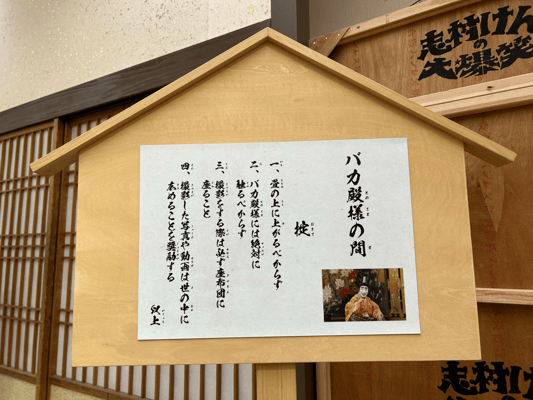 バカ殿様の間
掟
一、畳の上に上がるべからず
二、バカ殿様には絶対に
触るべからず
三、撮影をする際は必ず座布団に
座ること
四、撮影した写真や動画は世の中に
広めることを奨励する
以上
志村けん
の
大爆笑
志村けん